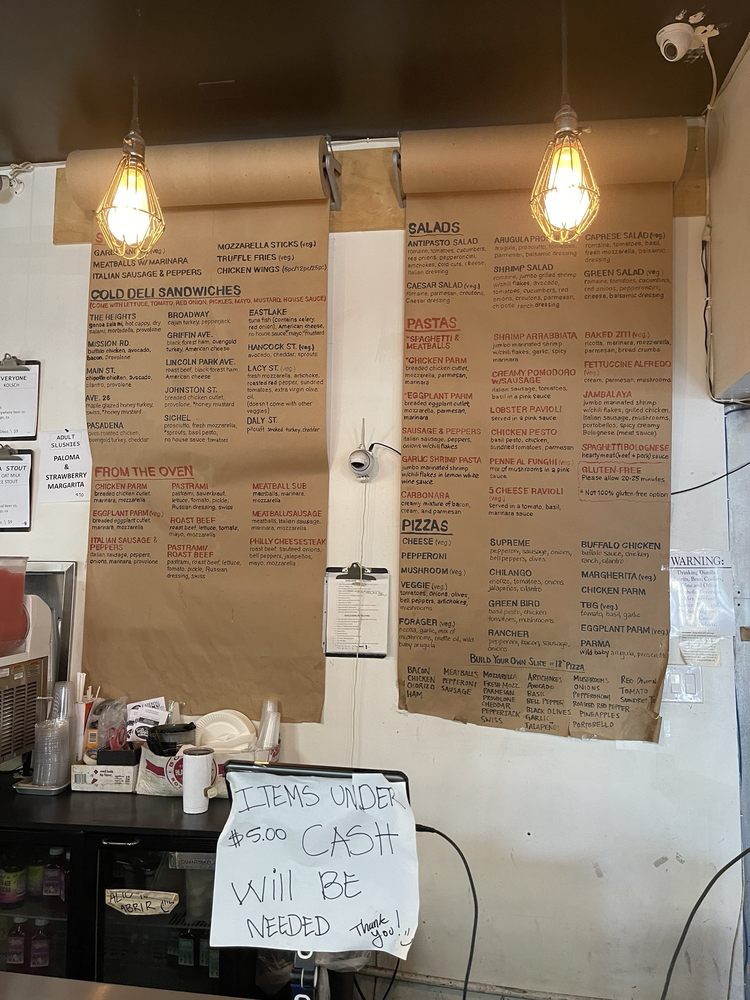 MOZZARELLA STICKS (veg.)
TRUFFLE FRIES (veg.)
CHICKEN WINGS (6pc/12pc/25pc)
MEATBALLS W/ MARINARA
ITALIAN SAUSAGE & PEPPERS
COLD DELI SANDWICHES
(COME WITH LETTUCE, TOMATO, RED ONION, PICKLES, MAYO, MUSTARD, HOUSE SAUCE)
THE HEIGHTS
genoa salami, hot cappy, dry
salami, mortadella, provolone
MISSION RD.
buffalo chicken, avocado,
bacon, provolone
MAIN ST.
chipotle chicken, avocado,
cilantro, provolone
AVE. 26
maple glazed honey turkey,
swiss, *honey mustard
PASADENA
ovengold turkey, cheddar
BROADWAY
cajun turkey, pepperjack
GRIFFIN AVE.
black forest ham, ovengold
turkey, American cheese
LINCOLN PARK AVE.
roast beef, black forest ham,
American cheese
JOHNSTON ST.
breaded chicken cutlet,
provolone, *honey mustard
SICHEL
prosciutto, fresh mozzarella,
*sprouts, basil pesto,
no house sauce
EASTLAKE
tuna fish (contains celery,
red onion), American cheese,
no house sauce, mayo, *mustard
HANCOCK ST. (veg.)
avocado, cheddar, sprouts
LACY ST. (veg.)
fresh mozzarella, artichoke,
roasted red pepper, sundried
tomatoes, extra virgin olive
oil
(doesn't come with other
veggies)
DALY ST.
smoked turkey, cheddar
FROM THE OVEN
CHICKEN PARM
breaded chicken cutlet,
marinara, mozzarella
EGGPLANT PARM (veg.)
breaded eggplant cutlet,
marinara, mozzarella
ITALIAN SAUSAGE &
PEPPERS
italian sausage, peppers,
onions, marinara, provolone
PASTRAMI
pastrami, sauerkraut,
lettuce, tomato, pickle,
Russian dressing, swiss
ROAST BEEF
roast beef, lettuce, tomato,
mayo, mozzarella
PASTRAMI/
ROAST BEEF
pastrami, roast beef, lettuce,
tomato, pickle, Russian
dressing, swiss
MEATBALL SUB
meatballs, marinara,
mozzarella
MEATBALL/SAUSAGE
meatballs, italian sausage,
marinara, mozzarella
PHILLY CHEESESTEAK
roast beef, sauteed onions,
bell pepper, jalapeños,
mayo, mozzarella
SALADS
ANTIPASTO SALAD
romaine, tomatoes, cucumbers,
red onions, pepperoncini,
artichokes, cold cuts, cheese,
italian dressing
CAESAR SALAD (veg.)
romaine, parmesan, croutons,
Caesar dressing
SHRIMP SALAD
romaine, jumbo grilled shrimp
w/chili flakes, avocado,
tomatoes, cucumbers, red
onions, croutons, parmesan,
chipotle ranch
CAPRESE SALAD (veg.)
romaine, tomatoes, basil,
fresh mozzarella, balsamic
dressing
GREEN SALAD (veg.)
romaine, tomatoes, cucumbers,
red onions, pepperoncini,
cheese, balsamic dressing
PASTAS
*SPAGHETTI &
MEATBALLS
*CHICKEN PARM
breaded chicken cutlet,
mozzarella, parmesan,
marinara
*EGGPLANT PARM
breaded eggplant cutlet,
mozzarella, parmesan,
marinara
SAUSAGE & PEPPERS
italian sausage, peppers,
onions w/chili flakes
GARLIC SHRIMP PASTA
jumbo marinated shrimp
w/chili flakes in lemon white
wine sauce
CARBONARA
creamy mixture of bacon,
cream, and parmesan
SHRIMP ARRABBIATA
jumbo marinated shrimp
w/chili flakes, garlic, spicy
marinara
CREAMY POMODORO
W/SAUSAGE
italian sausage, tomatoes,
basil in a pink sauce
LOBSTER RAVIOLI
served in a pink sauce
CHICKEN PESTO
basil pesto, chicken,
sundried tomatoes, parmesan
PENNE AL FUNGHI (veg.)
mix of mushrooms in a pink
sauce
5 CHEESE RAVIOLI
(veg.)
served in a tomato, basil,
marinara sauce
BAKED ZITI (veg.)
ricotta, marinara, mozzarella,
parmesan, bread crumbs
FETTUCCINE ALFREDO
(veg.)
cream, parmesan, mushrooms
JAMBALAYA
jumbo marinated shrimp
w/chili flakes, grilled chicken,
italian sausage, mushrooms,
portobello, spicy creamy
Bolognese (meat sauce)
SPAGHETTI BOLOGNESE
hearty meat (beef + pork) sauce
GLUTEN-FREE
Please allow 20-25 minutes
* Not 100% gluten-free option
PIZZAS
CHEESE (veg.)
PEPPERONI
MUSHROOM (veg.)
VEGGIE (veg.)
tomatoes, onions, olives,
bell peppers, artichokes,
mushrooms
FORAGER (veg.)
ricotta, garlic, mix of
mushrooms, truffle oil, wild
baby arugula
SUPREME
pepperoni, sausage, onions,
bell peppers, olives
CHILANGO
chorizo, tomatoes, onions,
jalapeños, cilantro
GREEN BIRD
basil pesto, chicken,
tomatoes, mushrooms
RANCHER
pepperoni, bacon, sausage,
onions
BUFFALO CHICKEN
buffalo sauce, chicken,
ranch, cilantro
MARGHERITA (veg.)
CHICKEN PARM
TBG (veg.)
tomato, basil, garlic
EGGPLANT PARM (veg.)
PARMA
wild baby arugula,
BUILD YOUR OWN SLICE or 18" PIZZA
BACON
CHICKEN
CHORIZO
HAM
MEATBALLS
PEPPERONI
SAUSAGE
MOZZARELLA
FRESH MOZZ.
PARMESAN
PROVOLONE
CHEDDAR
PEPPERJACK
SWISS
ARTICHOKES
AVOCADO
BASIL
BELL PEPPER
BLACK OLIVES
GARLIC
JALAPEÑO
MUSHROOMS
ONIONS
PEPPERONCINI
ROASTED RED PEPPER
PINEAPPLES
PORTOBELLO
RED ONION
TOMATO
ADULT
SLUSHIES
PALOMA
&
STRAWBERRY
MARGARITA
WARNING:
ITEMS UNDER
$5.00 CASH
WiLL BE
NEEDED Thank
you!